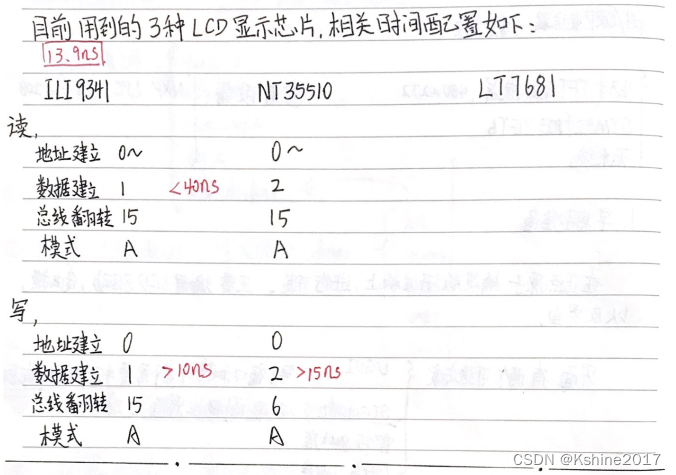 目前用到的3种LCD显示芯片,相关时间配置如下:
13.9ns
ILI9341 NT35510 LT7681
读,
地址建立 0~ 0~
数据建立 1 <40ns 2
总线翻转 15 15
模式 A A
写,
地址建立 0 0
数据建立 1 >10ns 2 >15ns
总线翻转 15 6
模式 A A
CSDN @Kshine2017